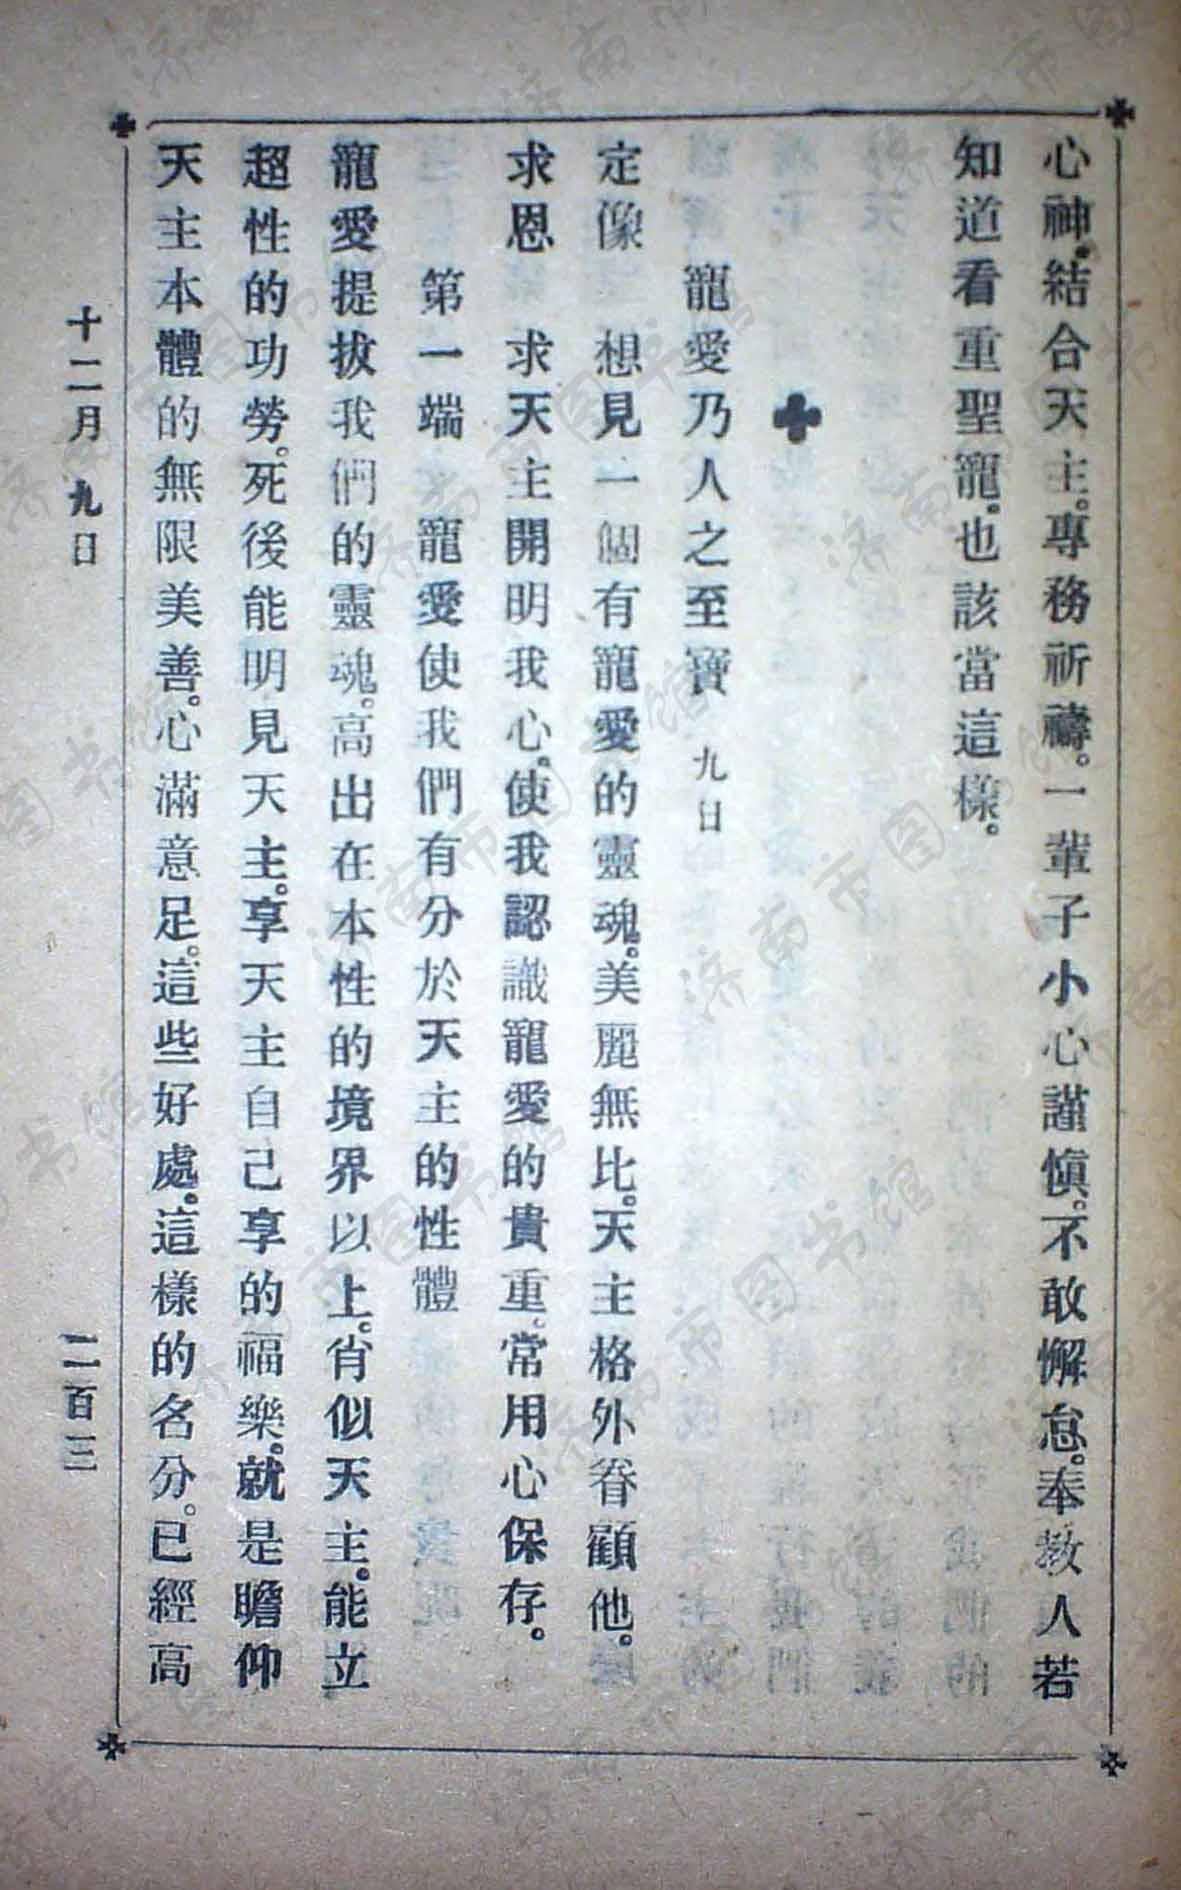 心神。結合天主。專務祈禱。一輩子小心謹慎。不敢懈怠。奉教人若
知道看重聖寵。也該當這樣。
寵愛乃人之至寶 九日
定像 想見一個有寵愛的靈魂。美麗無比。天主格外眷顧他。
求恩 求天主開明我心。使我認識寵愛的貴重。常用心保存。
第一端 寵愛使我們有分於天主的性體
寵愛提拔我們的靈魂。高出在本性的境界以上。肖似天主。能立
超性的功勞。死後能明見天主。享天主自己享的福樂。就是瞻仰
天主本體的無限美善。心滿意足。這些好處。這樣的名分。已經高
十二月九日 二百三
济南市图书馆